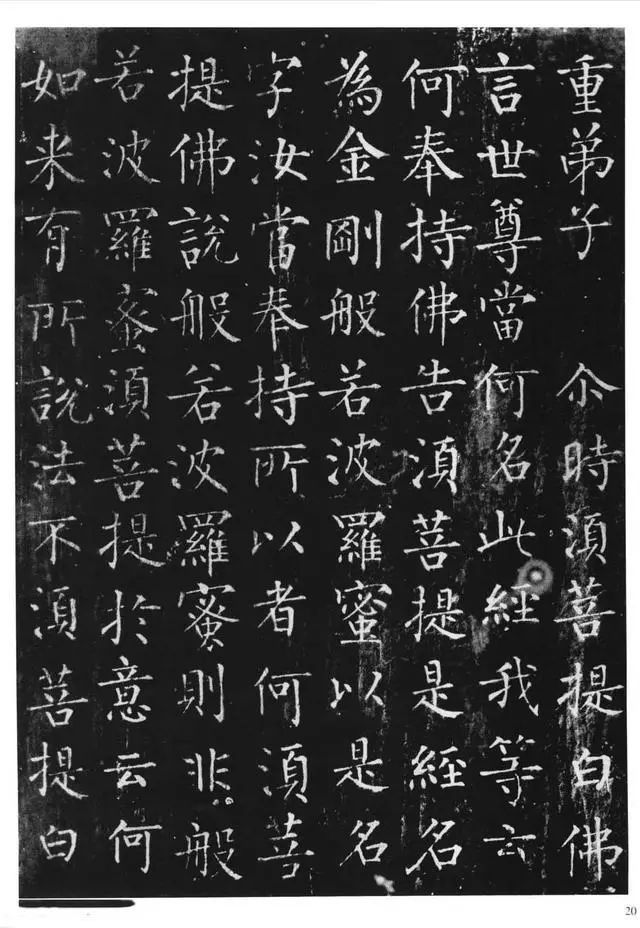 重弟子 尒時須菩提白佛
言世尊當何名此經我等云
何奉持佛告須菩提是經名
為金剛般若波羅蜜以是名
字汝當奉持所以者何須菩
提佛說般若波羅蜜則非般
若波羅蜜須菩提於意云何
如来有所說法不須菩提白
20